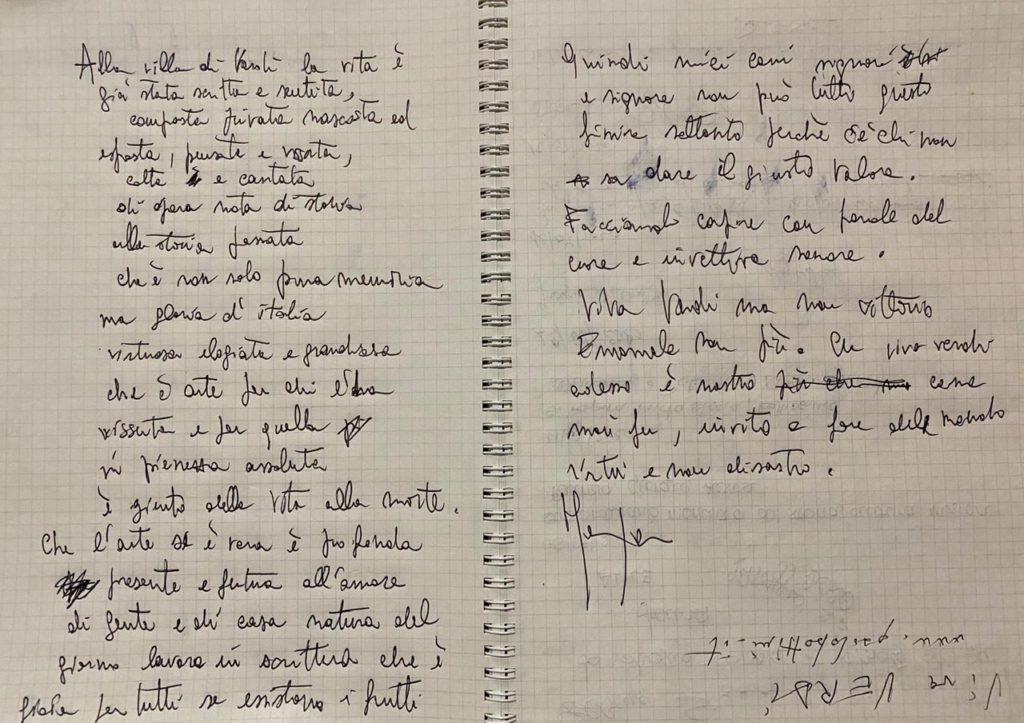 Alla villa di Verdi la vita è
già stata scritta e sentita,
composta privata nascosta ed
esposta, pensata e vissuta,
colta e cantata
di opera nota di storia
alla storia passata
che è non solo pura memoria
ma gloria d'italia
virtuosa elogiata e grandiosa
che è arte per chi l'ha
vissuta e per quella
in pienezza assoluta
è giunto dalla vita alla morte.
Che l'arte se è vera è profonda
presente e futura all'amore
di gente e di casa natura del
giorno lavoro in scrittura che è
per tutti se esistono i frutti
Quindi miei cari signori
e signore non può tutto questo
finire soltanto perchè c'è chi non
sa dare il giusto valore.
Facciamolo capire con parole del
cuore e invettiva
Viva Verdi ma non vittorio
Emanuele non più. Che viva verdi
adesso è nostro più che mai come
mai fu, invito a fare del mondo
virtù e non disastro.
Viva VERDI